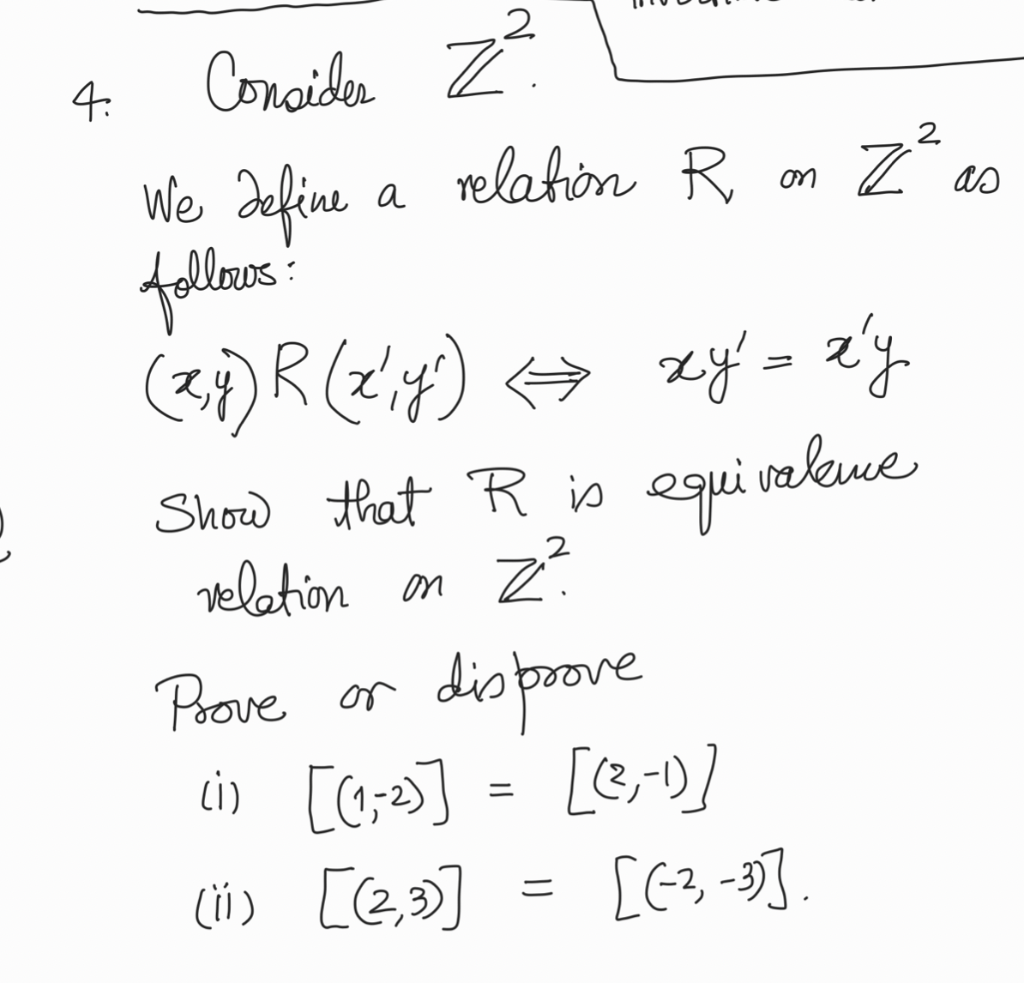 4. Consider ℤ².
We define a relation R on ℤ² as
follows:
(x,y) R (x',y') ⟺ xy' = x'y
Show that R is equivalence
relation on ℤ².
Prove or disprove
(i) [(1,-2)] = [(2,-1)]
(ii) [(2,3)] = [(-2,-3)].